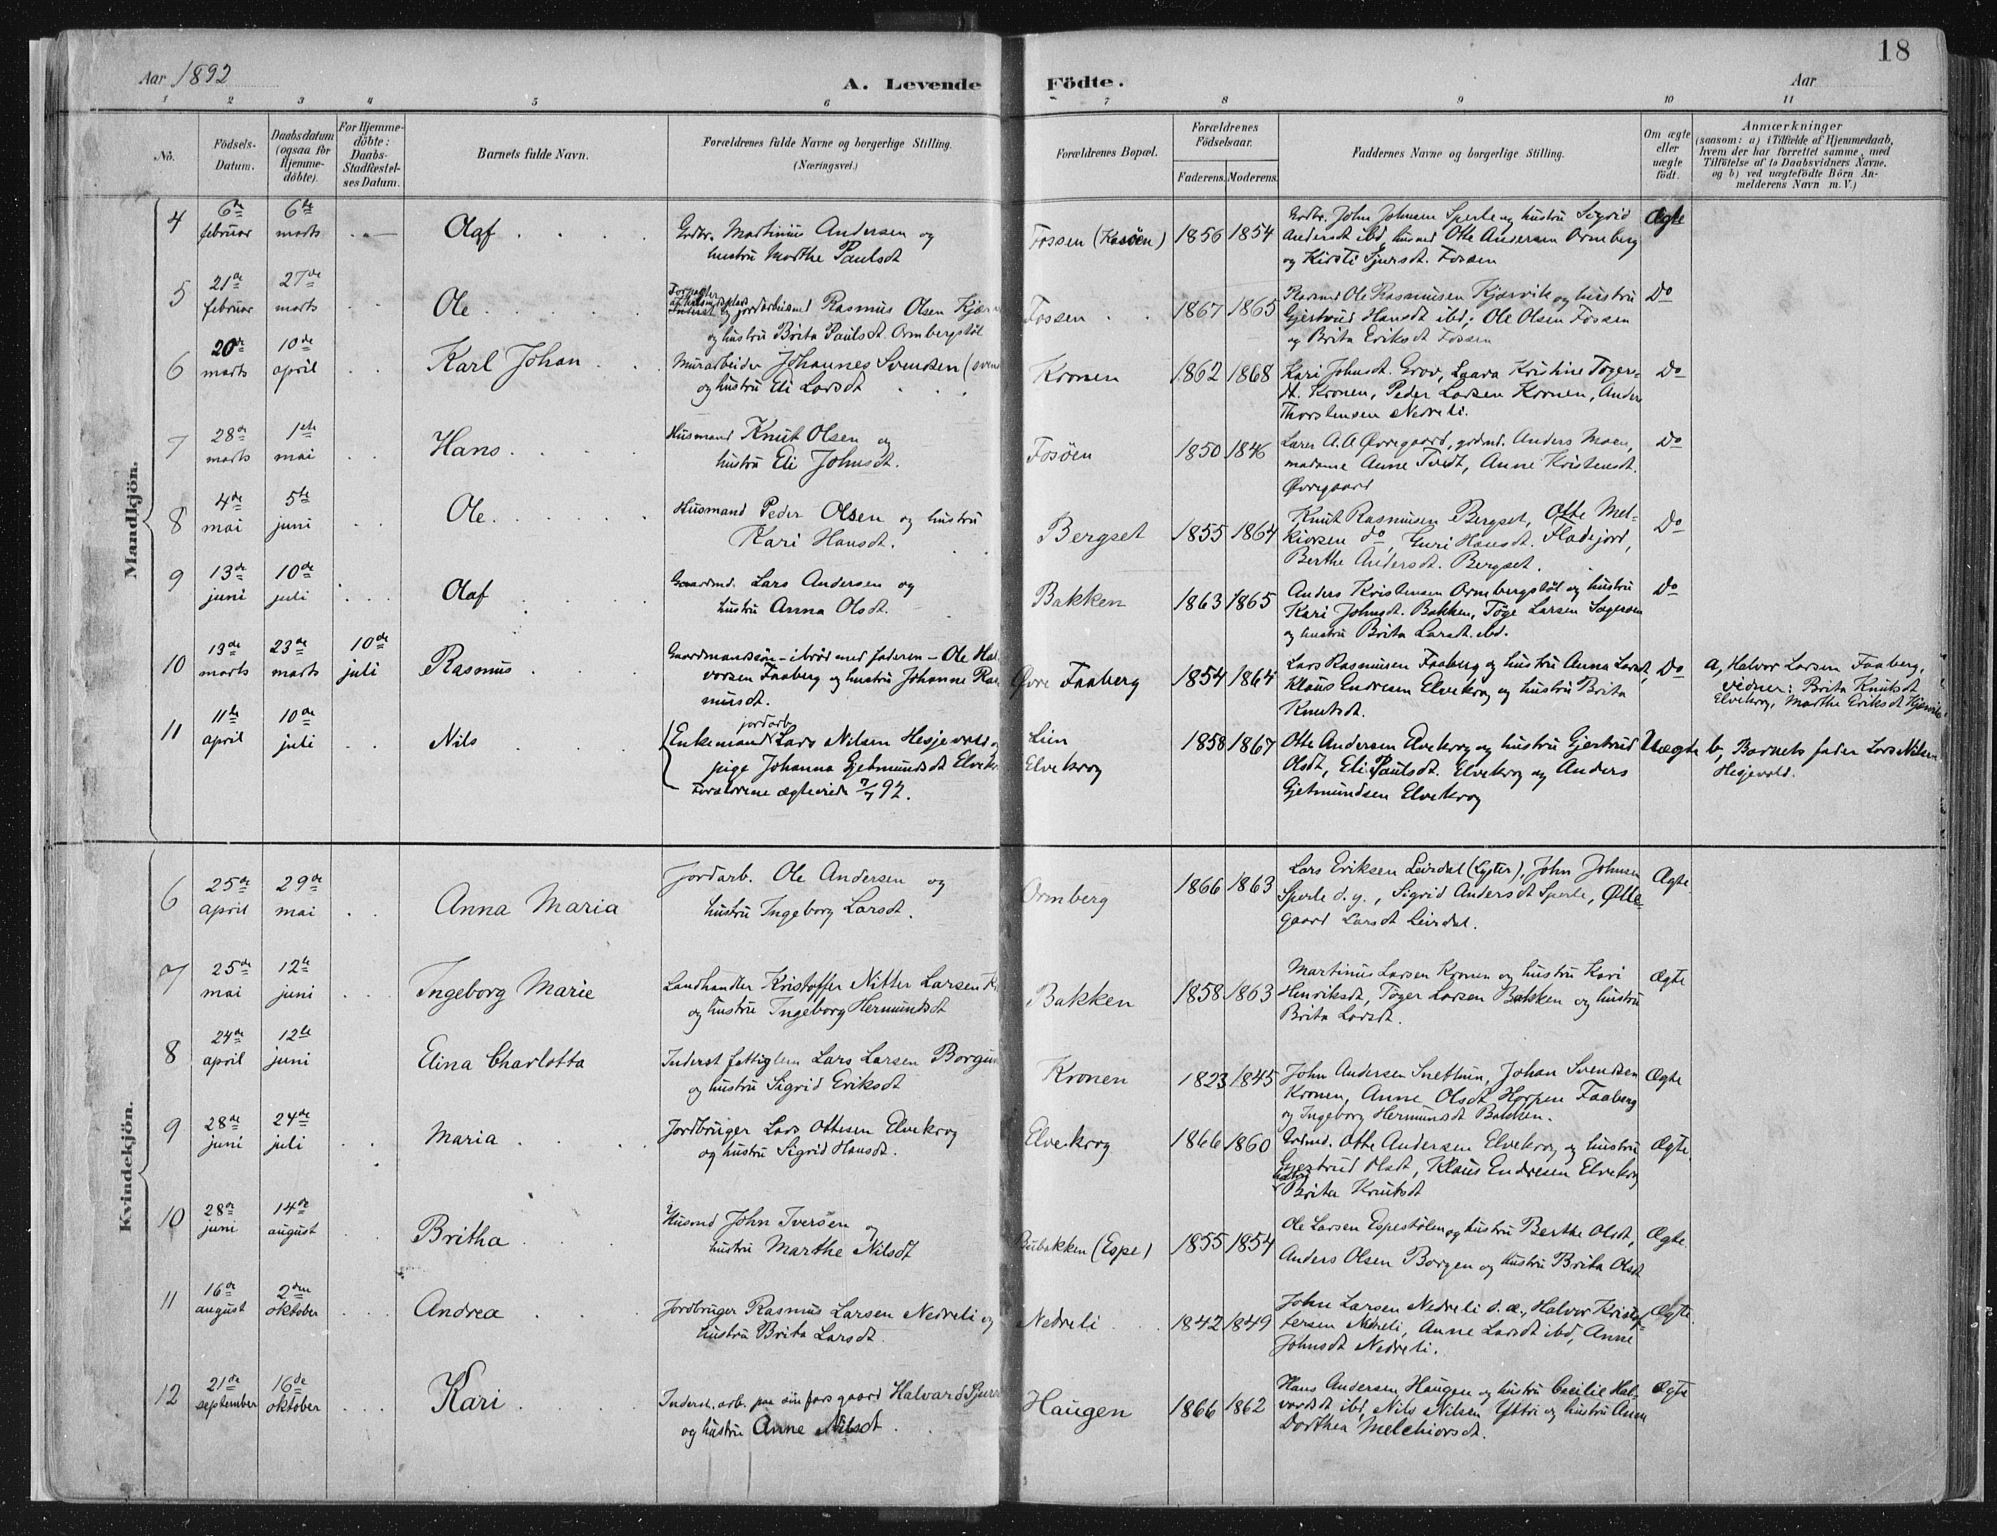 18
Aar 1892
A. Levende Födte.
Aar
1 2 3 4 5 6 7 8 9 10 11
No.
Födsels-Datum.
Daabsdatum (ogsaa for Hjemme-döbte).
For Hjemme-döbte: Daabs-Stadfæstel-ses Datum.
Barnets fulde Navn.
Forældrenes fulde Navne og borgerlige Stilling.
(Næringsvei.)
Forældrenes Bopæl.
Forældrenes Födselsaar.
Faderens. Moderens.
Faddernes Navne og borgerlige Stilling.
Om ægte eller uægte födt.
Anmærkninger
(saasom: a) i Tilfælde af Hjemmedaab, hvem der har forrettet samme, med Tilföielse af to Daabsvidners Navne, og b) ved uægtefödte Börn An-melderens Navn m. V.)
Mandkjön.
4 6te februar 6te marts Olaf
Grdbr. Martinius Andersen og
hustru Marthe Paulsdt
Fossen (Kasöen) 1856 1854
Grdbr. John Johnsen Sperle og hustru Sigrid
Andersdt ibd, husmd Otte Andersen Ormberg
og Kirsti Sjursdt. Fossen
Ægte
5 21de februar 27de marts Ole
og jordarbeimd Rasmus Olsen
og hustru Brita Paulsdt. Ormbergstöl
Fossen 1867 1865
Ole Rasmusen Kjærvik og hustru
Gjertrud Hansdt ibd; Ole Olsen Fossen
og Brita Eriksdt Fossen
Do
6 20de marts 10de april Karl Johan
Murarbeider Johannes Svendsen
og hustru Eli Larsdt
Kronen 1862 1868
Kari Johnsdt. Grov, Laura Kristine Töger-
dt. Kronen, Peder Larsen Kronen, Anders
Thorstensen Nedreli.
Do
7 28de marts 1ste mai Hans
Husmand Knut Olsen og
hustru Eli Johnsdt.
Fosöen 1850 1846
Lærer A. A Övregaard, grdmd. Anders Moen,
madame Anne Tvedt, Anne Kristensdt.
Övregaard
Do
8 4de mai 5te juni Ole
Husmand Peder Olsen og hustru
Kari Hansdt.
Bergset 1855 1864
Knut Rasmusen Bergset, Otte Mel-
kiorsen do, Guri Hansdt. Fladejord,
Berthe Andersdt. Bergset.
Do
9 13de juni 10de juli Olaf
Gaardmd. Lars Andersen og
hustru Anna Olsdt.
Bakken 1863 1865
Anders Kristensen Ormbergstöl og hustru
Kari Johnsdt. Bakken, Töge Larsen
og hustru Brita Larsdt. ibd.
Do
10 13de marts 23de marts 10de juli Rasmus
Gaardmandssön – i bröd med faderen – Ole Hal-
vorsen Faaberg og hustru Johanne Ras
musdt.
Övre Faaberg 1854 1864
Lars Rasmusen Faaberg og hustru Anna Larsdt,
Klaus Endresen Elvekrog og hustru Brita
Knutsdt.
Do
a, Halvor Larsen Faaberg,
vidner: Brita Knutsdt
Elvekrog, Marthe Eriksdt Kjærvik
11 11te april 10de juli Nils
jordarb.
Enkemand Lars Nilsen Hesjevold og
pige Johanna Gjetmundsdt
Forældrene ægteviede 92.
Lien
Elvekrog
1858 1867
Otte Andersen Elvekrog og hustru Gjertrud
Olsdt, Eli Paulsdt. Elvekrog og Anders
Gjetmundsen Elvekrog
Uægte
b, Barnets fader Lars Nilsen
Hesjevold.
Kvindekjön.
6 25de april 29de mai Anna Maria
Jordarb. Ole Andersen og
hustru Ingeborg Larsdt.
Ormberg 1866 1863
Lars Eriksen Leirdal (Lyster), John Johnsen
Sperle d. y., Sigrid Andersdt Sperle,
Larsdt Leirdal.
Ægte
7 25de mai 12te juni Ingeborg Marie
Landhandler Kristoffer Nitter Larsen
og hustru Ingeborg Hermundsdt
Bakken 1858 1863
Martinus Larsen Kronen og hustru Kari
Henriksdt, Töger Larsen Bakken og hustru
Brita Larsdt.
Ægte
8 24de april 12te juni Elina Charlotta
Inderst fattiglem Lars Larsen
og hustru Sigrid Eriksdt
Kronen 1823 1845
John Andersen Snethun, Johan Svendsen
Kronen, Anne Olsdt Horpen Faaberg
og Ingeborg Hermundsdt Bakken.
Ægte
9 28de juni 24de juli Maria
Jordbruger Lars Ottesen Elvekrog
og hustru Sigrid Hansdt.
Elvekrog 1866 1860
Grdmd. Otte Andersen Elvekrog og hustru
Gjertrud Olsdt, Klaus Endresen Elvekrog
hustru Brita Knutsdt
Ægte
10 28de juni 14de august Britha
Husmd John Iversen og
hustru Marthe Nilsdt
Bubakken (Espe) 1855 1854
Ole Larsen Espestölen og hustru Berthe Olsdt,
Anders Olsen Borgen og hustru Brita Olsdt
Ægte
11 16de august 2den oktober Andrea
Jordbruger Rasmus Larsen Nedreli og
hustru Brita Larsdt.
Nedreli 1842 1849
John Larsen Nedreli d. æ., Halvor Kristof-
fersen Nedreli, Anne Larsdt ibd, Anne
Johnsdt Nedreli.
Ægte
12 21de september 16de oktober Kari
Inderst, arb. paa sin fars gaard Halvard
og hustru Anne Nilsdt
Haugen 1866 1862
Hans Andersen Haugen og hustru Cecilie Hal-
vordsdt ibd, Nils Nilsen Yttri og hustru Anne
Dorthea Melchiorsdt.
Ægte